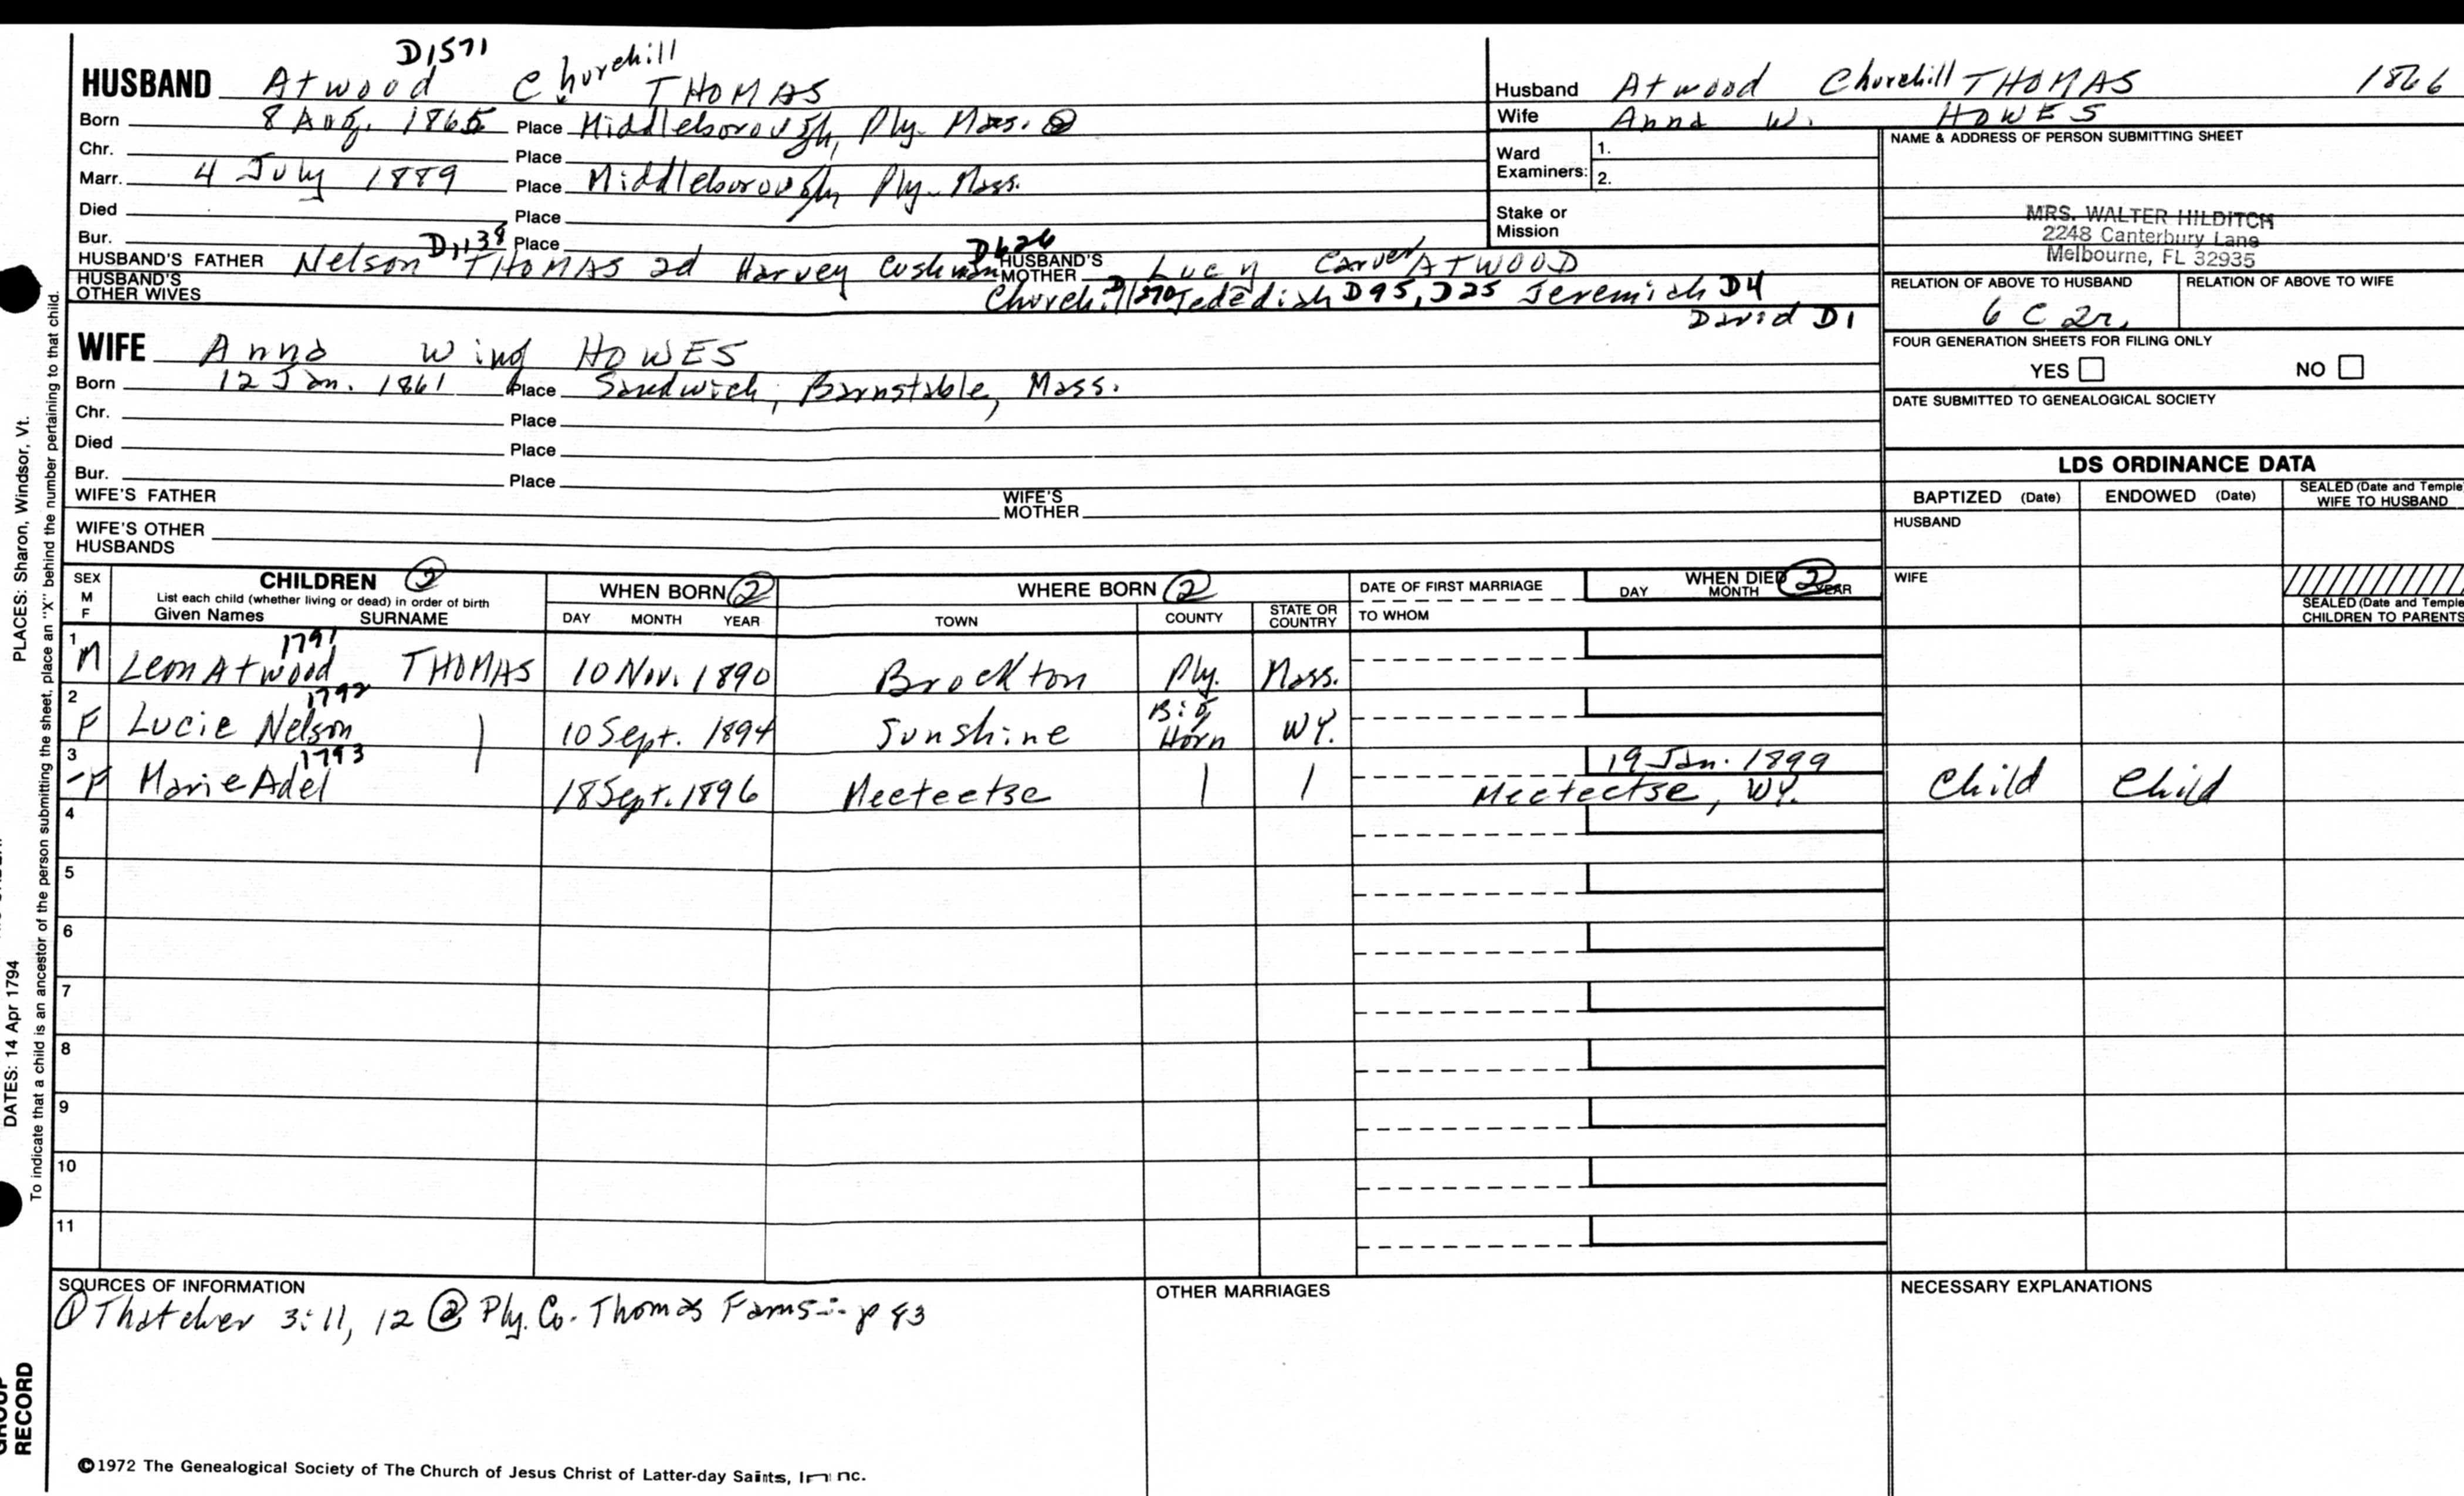 D1571
HUSBAND Atwood Churchill THOMAS
Born 8 Aug. 1865 Place Middleborough, Ply. Mass. ②
Chr. Place
Marr. 4 July 1889 Place Middleborough, Ply. Mass.
Died Place
Bur. Place
D1138 D626
HUSBAND'S FATHER Nelson THOMAS 2d Harvey Cushman HUSBAND'S MOTHER Lucy Carver ATWOOD
HUSBAND'S OTHER WIVES Churchill D270 Jedediah D95, D25 Jeremiah D4
David D1
WIFE Anna Wing HOWES
Born 12 Jan. 1861 Place Sandwich, Barnstable, Mass.
Chr. Place
Died Place
Bur. Place
WIFE'S FATHER WIFE'S MOTHER
WIFE'S OTHER HUSBANDS
Husband Atwood Churchill THOMAS 1866
Wife Anna W. HOWES
Ward Examiners: 1.
2.
Stake or Mission
NAME & ADDRESS OF PERSON SUBMITTING SHEET
MRS. WALTER HILDITCH
2248 Canterbury Lane
Melbourne, FL 32935
RELATION OF ABOVE TO HUSBAND RELATION OF ABOVE TO WIFE
6 C 2r.
FOUR GENERATION SHEETS FOR FILING ONLY
YES NO
DATE SUBMITTED TO GENEALOGICAL SOCIETY
LDS ORDINANCE DATA
BAPTIZED (Date) ENDOWED (Date) SEALED (Date and Temple
WIFE TO HUSBAND
HUSBAND
WIFE
SEALED (Date and Temple
CHILDREN TO PARENTS
SEX M F CHILDREN ② WHEN BORN ② WHERE BORN ② DATE OF FIRST MARRIAGE WHEN DIED ②
List each child (whether living or dead) in order of birth
Given Names SURNAME DAY MONTH YEAR TOWN COUNTY STATE OR COUNTRY TO WHOM DAY MONTH YEAR
1791
1 M Leon Atwood THOMAS 10 Nov. 1890 Brockton Ply. Mass.
1792
2 F Lucie Nelson | 10 Sept. 1894 Sunshine Big Horn WY.
1793
3 -F Marie Adel 18 Sept. 1896 Meeteetse | | 19 Jan. 1899
Meeteetse, WY. Child Child
4
5
6
7
8
9
10
11
SOURCES OF INFORMATION
① Thatcher 3:11, 12 ② Ply. Co. Thomas Fams -- p 83
OTHER MARRIAGES
NECESSARY EXPLANATIONS
©1972 The Genealogical Society of The Church of Jesus Christ of Latter-day Saints, Inc.
PLACES: Sharon, Windsor, Vt.
DATES: 14 Apr 1794
To indicate that a child is an ancestor of the person submitting the sheet, place an "X" behind the number pertaining to that child.
GROUP
RECORD